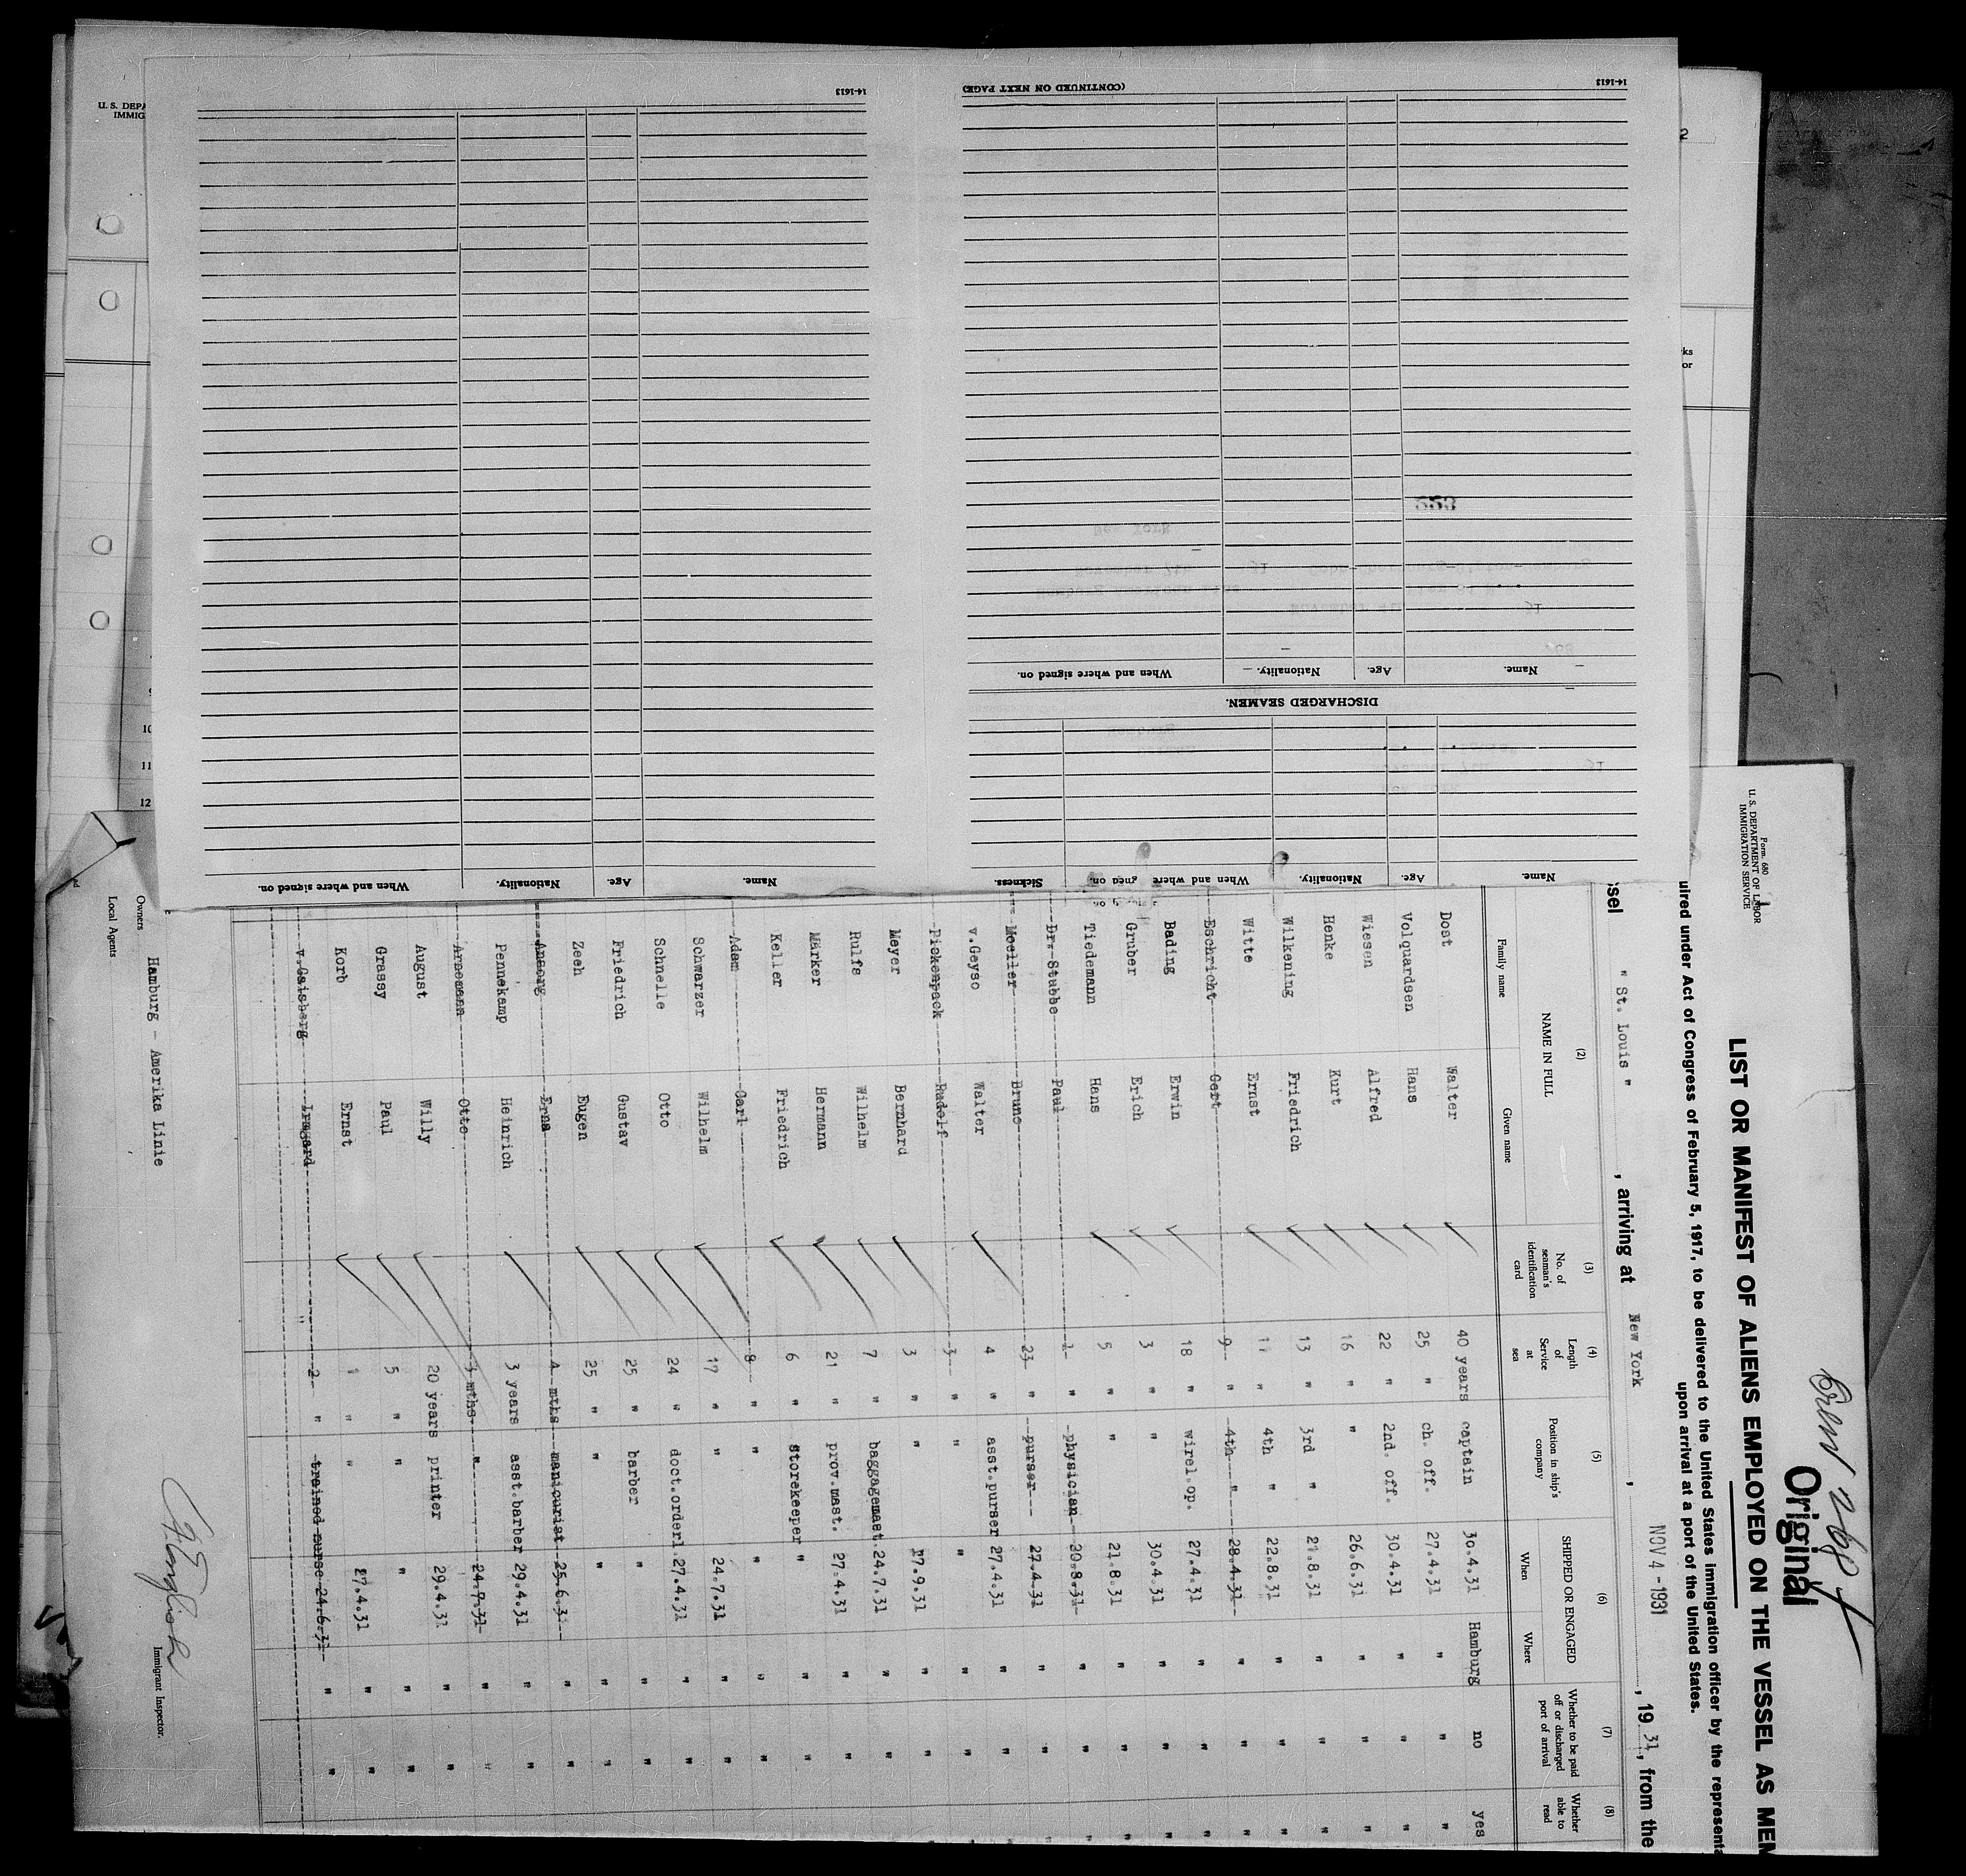 U. S. DEPA
IMMIG
14-1613
(CONTINUED ON NEXT PAGE)
14-1613
When and where signed on.
Nationality.
Age.
Name.
DISCHARGED SEAMEN.
When and where signed on.
Nationality.
Age.
Name.
Sickness.
When and where
Nationality.
Age.
Name.
10
11
12
Form 680
U. S. DEPARTMENT OF LABOR
IMMIGRATION SERVICE
Original
LIST OR MANIFEST OF ALIENS EMPLOYED ON THE VESSEL AS MEM
uired under Act of Congress of February 5, 1917, to be delivered to the United States immigration officer by the representa
upon arrival at a port of the United States.
ssel " St. Louis " , arriving at New York , NOV 4 - 1931 , 19 31, from the
(2) NAME IN FULL
Family name Given name
(3) No. of seaman's identification card
(4) Length of Service at sea
(5) Position in ship's company
(6) SHIPPED OR ENGAGED
When Where
(7) Whether to be paid off or discharged port of arrival
(8) Whether able to read
Dost Walter 40 years captain 30.4.31 Hamburg no yes
Volquardsen Hans 25 " ch. off. 27.4.31 " " "
Wiesen Alfred 22 " 2nd. off. 30.4.31 " " "
Henke Kurt 16 " " 26.6.31 " " "
Wilkening Friedrich 13 " 3rd " 21.8.31 " " "
Witte Ernst 11 " 4th " 22.8.31 " " "
Eschricht Gert 9 " 4th " 28.4.31 " " "
Bading Erwin 18 " wirel.op. 27.4.31 " " "
Gruber Erich 3 " " 30.4.31 " " "
Tiedemann Hans 5 " " 21.8.31 " " "
Dr. Stubbe Paul 1 " physician 20.8.31 " " "
Moeller Bruno 23 " purser 27.4.31 " " "
v.Geyso Walter 4 " asst.purser 27.4.31 " " "
Pickenpack Rudolf 3 " " " " " "
Meyer Bernhard 3 " " 17.9.31 " " "
Rulfs Wilhelm 7 " baggagemast. 24.7.31 " "
Märker Hermann 21 " prov.mast. 27.4.31 " "
Keller Friedrich 6 " storekeeper " " "
Adam Carl 8 " " " " "
Schwarzer Wilhelm 17 " " 24.7.31 " "
Schnelle Otto 24 " doct.orderl. 27.4.31 " "
Friedrich Gustav 25 " barber " " "
Zeeh Eugen 25 " " " " "
Ansorg Erna 4 mths manicurist 25.6.31 " "
Pennekamp Heinrich 3 years asst.barber 29.4.31 " "
Arnemann Otto 3 mths " 24.7.31 " "
August Willy 20 years printer 29.4.31 " "
Grassy Paul 5 " " " " "
Korb Ernst 1 " " 27.4.31 " "
v.Gaisberg Irmgard 2 " trained nurse 24.6.31 " "
Owners Hamburg - Amerika Linie
Local Agents
Immigrant Inspector.